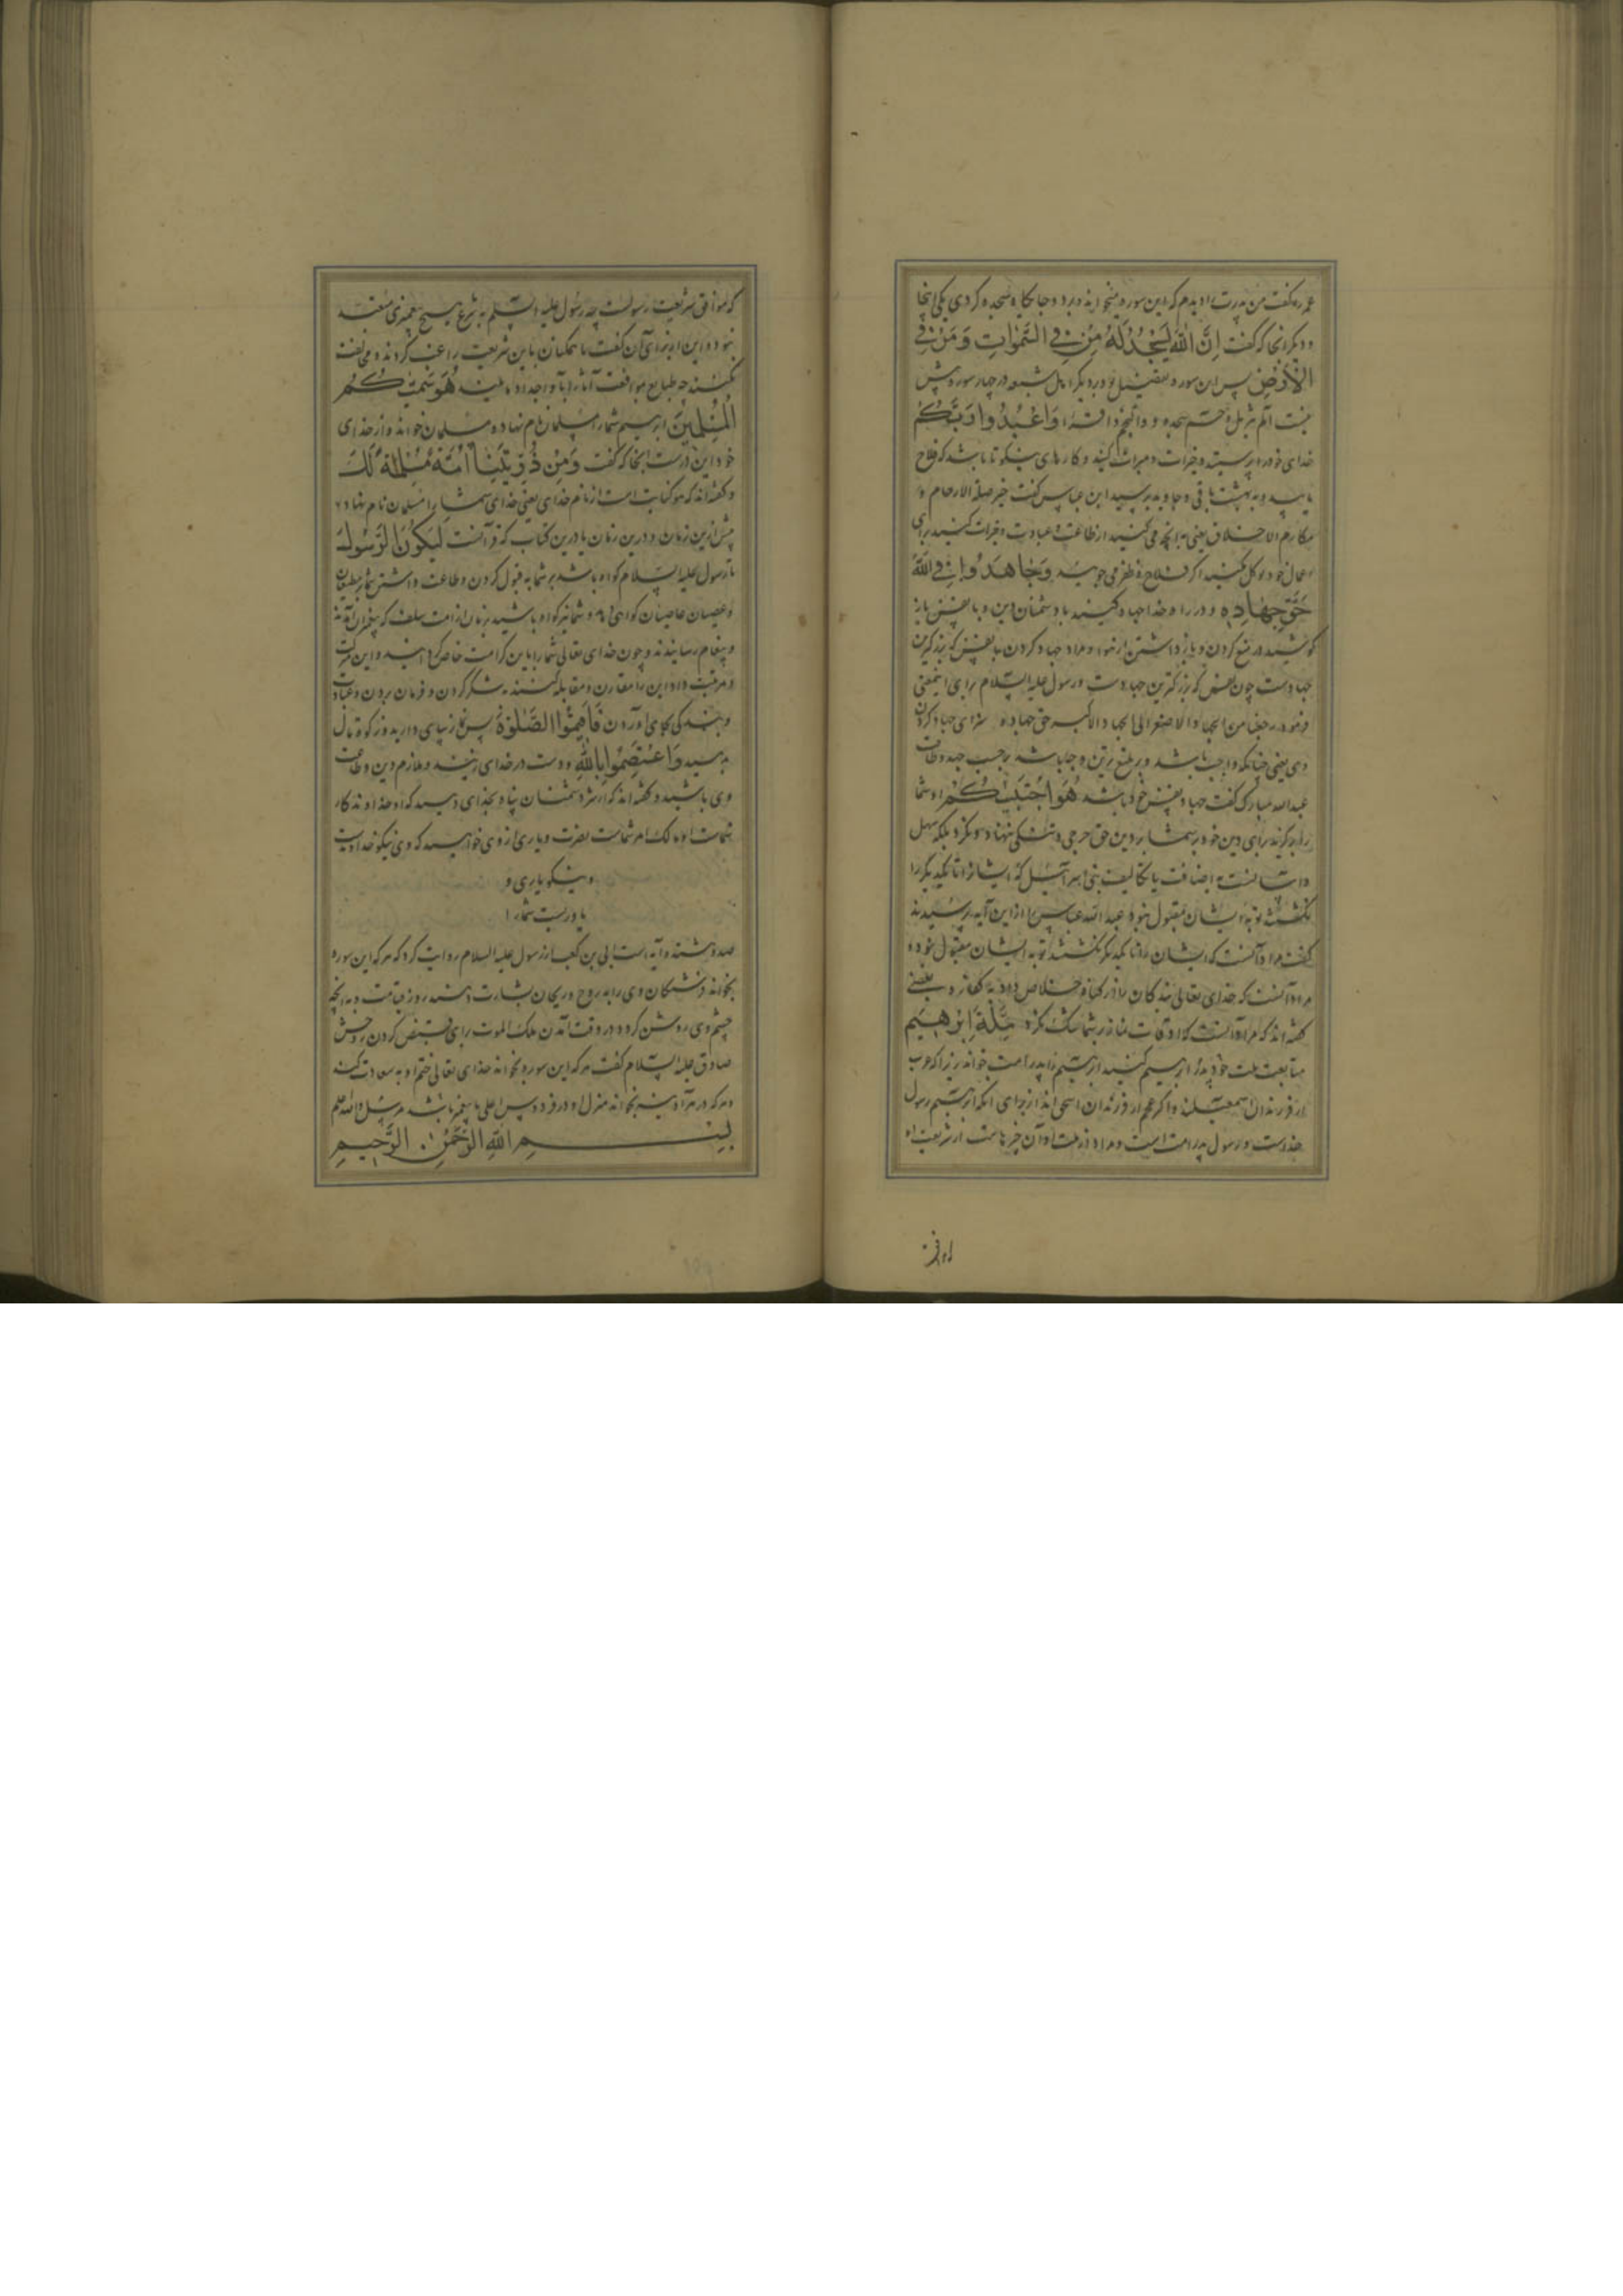 عمر را گفت من پدرت را دیدم که این سوره میخواند و بدو جایگاه سجده کردی یکی اینجا
و دیگر آنجا که گفت اِنَّ اللّٰهَ یَسْجُدُ لَهُ مَنْ فِی السَّمٰوَاتِ وَمَنْ فِی
الْاَرْضِ پس این سوره بود و دیگر اهل شیعه در چهار سوره بیش
نیست الم تنزیل و حم سجده و والنجم و اقرا وَاعْبُدُوا رَبَّكُمْ
خدای خود را پرستید و خیرات و مبرات کنید و کارهای نیکو تا باشد که فلاح
یابید و به بهشت باقی و جاوید برسید ابن عباس گفت خیر صلة الارحام و
مکارم الاخلاق یعنی آنچه می کنید از طاعت و عبادت و خیرات کنید برای
اگر فلاح و ظفر می جویید وَجَاهِدُوا فِی اللّٰهِ
حَقَّ جِهَادِهِ و در راه خدا جهاد کنید با دشمنان دین و با نفس باز
کوشید در منع کردن و باز داشتن از هوا و مراد جهاد کردن با نفس که بزرگترین
جهادست چون نفس که بزرگترین جهادست و رسول علیه السلام برای اینمعنی
فرمود رجعنا من الجهاد الاصغر الی الجهاد الاکبر حق جهاده سزای جهاد کردن
وی یعنی چنانکه واجب باشد و بر بلیغ ترین وجها باشد برحسب جهد و طاقت
عبدالله مبارک گفت جهاد نفس خود باشد هُوَ اجْتَبٰیكُمْ او شما
را برگزید برای دین خود و بر شما در دین حق حرجی و تنگی ننهاد و نکرد بلکه سهل
و آسانست به اضافت با تکالیف بنی اسرآئیل که ایشانرا تا یکدیگر را
نکشتند توبۀ ایشان مقبول نبود عبدالله عباس را از این آیه پرسیدند
گفت مراد آنست که ایشان را تا یکدیگر نکشتند توبه ایشان مقبول نبود و
مراد آنست که خدای تعالی بندگان را از گناه خلاص داد به کفاره و بعضی
گفته اند که مراد آنست که اوقات نماز بر شما تنگ نکرد مِلَّةَ اِبْرٰهِیمَ
متابعت ملت خود پدر ابرهیم کنید ابرهیم را پدر امت خواند زیرا که عرب
از فرزندان اسمعیلند و اکثر عجم از فرزندان اسحق اند از برای آنکه ابرهیم رسول
خداست و رسول پدر امت است و مراد از ملت او آن چیزهاست از شریعت او
که موافق شریعت رسولست چه رسول علیه السلم به شرع هیچ پیغمبری متعبد
نبود و این از برای آن گفت تا همگنان باین شریعت راغب گردند و مخالفت
نکنند چه طبایع موافقت آثار آبا و اجداد هُوَ سَمّٰیكُمُ
الْمُسْلِمِینَ ابرهیم شما را مسلمان نام نهاد و مسلمان خواند و از خدای
خود این درخواست آنجا که گفت وَمِنْ ذُرِّیَّتِنَا اُمَّةً مُسْلِمَةً لَكَ
و گفته اند که هو کنایت است از نام خدای یعنی خدای شما را مسلمان نام نهاد
پیش ازین زمان و درین زمان یا درین کتاب که قرآنست لِیَكُونَ الرَّسُولُ
تا رسول علیه السلام گواه باشد بر شما به قبول کردن و طاعت داشتن مطیعان
و عصیان عاصیان گواهی دهد و شما نیز گواه باشید بر امت سلف که پیغمبران آمدند
و پیغام رسانیدند و چون خدای تعالی شما را باین کرامت خاص گردانید و این مرتبت
و مرتبت داد این را مقارن و مقابله کنید به شکر کردن و فرمان بردن و عبادت
و بندگی بجای آوردن فَاَقِیمُوا الصَّلٰوةَ پس نماز بپای دارید و زکوة مال
بدهید وَاعْتَصِمُوا بِاللّٰهِ و دست در خدای زنید و ملازم دین و طاعت
وی باشید و گفته اند که از شر دشمنان پناه بخدای دهید که او خداوندگار
شماست او مالک امر شماست نصرت و یاری از وی خواهید که وی نیکو خداوندیست
و نیکو یاری و
یاورست شما را
صد و هشتده آیه است ابی بن کعب از رسول علیه السلام روایت کرد که هر که این سوره
بخواند فرشتگان وی را به روح و ریحان بشارت دهند روز قیامت و به آنچه
چشم وی روشن گردد در وقت آمدن ملک الموت برای قبض کردن روحش
صادق علیه السلام گفت هر که این سوره بخواند خدای تعالی ختم او به سعادت کند
و هر که در هر آدینه بخواند منزل او در فردوس اعلی با پیغمبر باشد
بِسْمِ اللّٰهِ الرَّحْمٰنِ الرَّحِیمِ